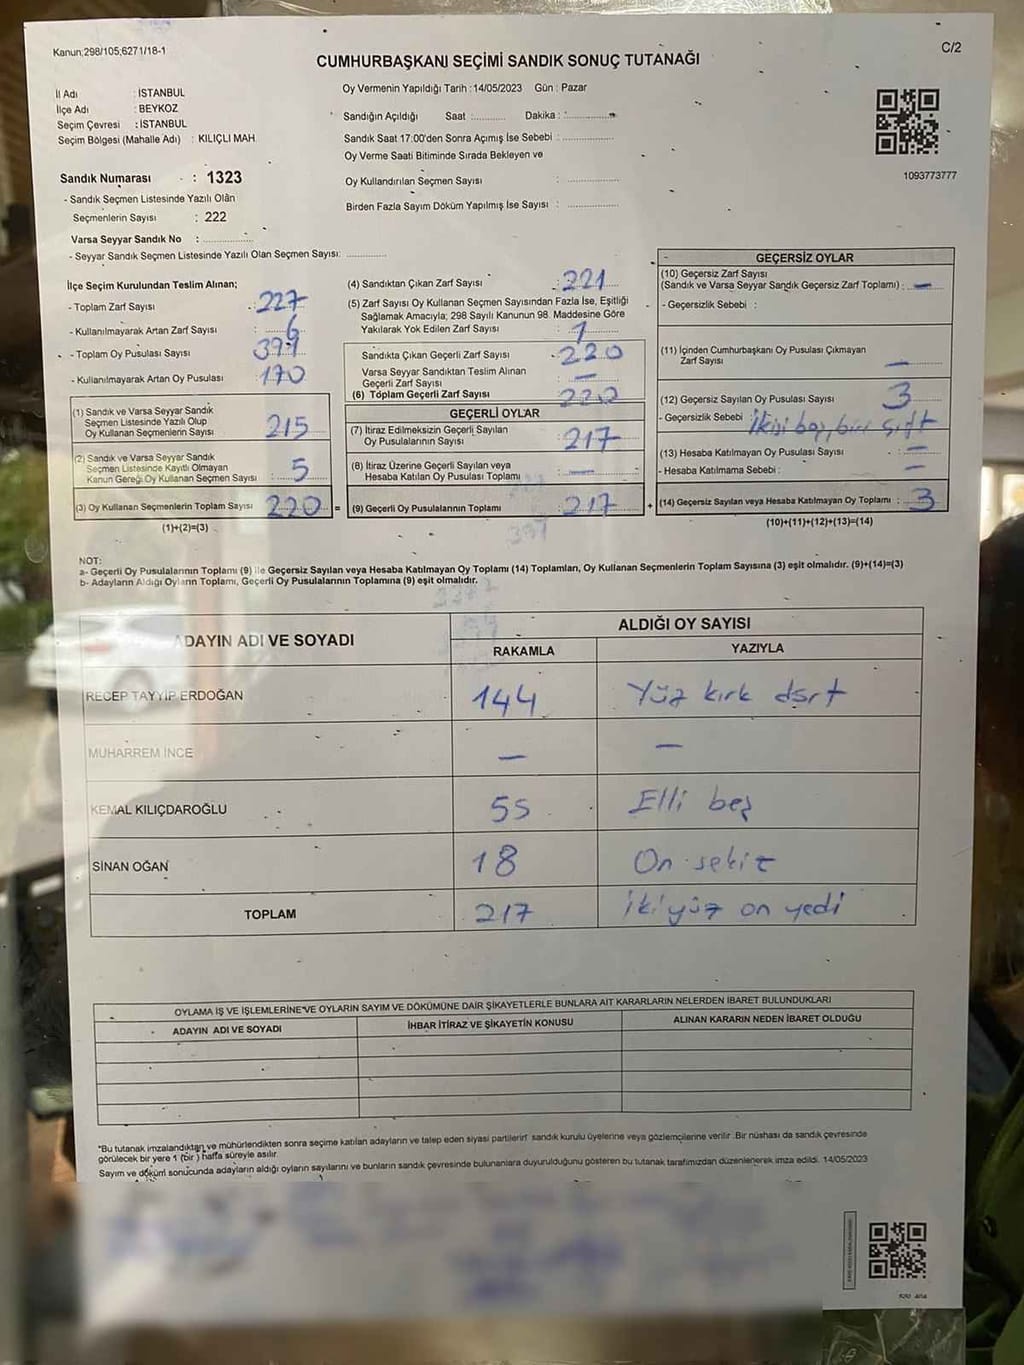 Kanun;298/105,6271/18-1
C/2
CUMHURBAŞKANI SEÇİMİ SANDIK SONUÇ TUTANAĞI
İl Adı : İSTANBUL
İlçe Adı : BEYKOZ
Seçim Çevresi : İSTANBUL
Seçim Bölgesi (Mahalle Adı) : KILIÇLI MAH.
Sandık Numarası : 1323
- Sandık Seçmen Listesinde Yazılı Olan
Seçmenlerin Sayısı : 222
Varsa Seyyar Sandık No :
- Seyyar Sandık Seçmen Listesinde Yazılı Olan Seçmen Sayısı:
Oy Vermenin Yapıldığı Tarih : 14/05/2023 Gün : Pazar
Sandığın Açıldığı Saat : Dakika :
Sandık Saat 17:00'den Sonra Açımış İse Sebebi :
Oy Verme Saati Bitiminde Sırada Bekleyen ve
Oy Kullandırılan Seçmen Sayısı :
Birden Fazla Sayım Döküm Yapılmış İse Sayısı :
1093773777
İlçe Seçim Kurulundan Teslim Alınan;
- Toplam Zarf Sayısı : 227
- Kullanılmayarak Artan Zarf Sayısı : 6
- Toplam Oy Pusulası Sayısı
- Kullanılmayarak Artan Oy Pusulası : 170
(1) Sandık ve Varsa Seyyar Sandık
Seçmen Listesinde Yazılı Olup
Oy Kullanan Seçmenlerin Sayısı : 215
(2) Sandık ve Varsa Seyyar Sandık
Seçmen Listesinde Kayıtlı Olmayan
Kanun Gereği Oy Kullanan Seçmen Sayısı : 5
(3) Oy Kullanan Seçmenlerin Toplam Sayısı : 220 =
(1)+(2)=(3)
(4) Sandıktan Çıkan Zarf Sayısı : 221
(5) Zarf Sayısı Oy Kullanan Seçmen Sayısından Fazla İse, Eşitliği
Sağlamak Amacıyla; 298 Sayılı Kanunun 98. Maddesine Göre
Yakılarak Yok Edilen Zarf Sayısı : 1
Sandıkta Çıkan Geçerli Zarf Sayısı : 220
Varsa Seyyar Sandıktan Teslim Alınan
Geçerli Zarf Sayısı : —
(6) Toplam Geçerli Zarf Sayısı : 220
GEÇERLİ OYLAR
(7) İtiraz Edilmeksizin Geçerli Sayılan
Oy Pusulalarının Sayısı : 217
(8) İtiraz Üzerine Geçerli Sayılan veya
Hesaba Katılan Oy Pusulası Toplamı : —
(9) Geçerli Oy Pusulalarının Toplamı : 217 +
GEÇERSİZ OYLAR
(10) Geçersiz Zarf Sayısı
(Sandık ve Varsa Seyyar Sandık Geçersiz Zarf Toplamı) : —
- Geçersizlik Sebebi :
(11) İçinden Cumhurbaşkanı Oy Pusulası Çıkmayan
Zarf Sayısı : —
(12) Geçersiz Sayılan Oy Pusulası Sayısı : 3
- Geçersizlik Sebebi : İkisi boş, biri çift
(13) Hesaba Katılmayan Oy Pusulası Sayısı : —
- Hesaba Katılmama Sebebi : —
(14) Geçersiz Sayılan veya Hesaba Katılmayan Oy Toplamı : 3
(10)+(11)+(12)+(13)=(14)
NOT:
a- Geçerli Oy Pusulalarının Toplamı (9) ile Geçersiz Sayılan veya Hesaba Katılmayan Oy Toplamı (14) Toplamları, Oy Kullanan Seçmenlerin Toplam Sayısına (3) eşit olmalıdır. (9)+(14)=(3)
b- Adayların Aldığı Oyların Toplamı, Geçerli Oy Pusulalarının Toplamına (9) eşit olmalıdır.
ADAYIN ADI VE SOYADI
ALDIĞI OY SAYISI
RAKAMLA YAZIYLA
RECEP TAYYİP ERDOĞAN 144 Yüz kırk dört
MUHARREM İNCE — —
KEMAL KILIÇDAROĞLU 55 Elli beş
SİNAN OĞAN 18 On sekiz
TOPLAM 217 İkiyüz on yedi
OYLAMA İŞ VE İŞLEMLERİNE VE OYLARIN SAYIM VE DÖKÜMÜNE DAİR ŞİKAYETLERLE BUNLARA AİT KARARLARIN NELERDEN İBARET BULUNDUKLARI
ADAYIN ADI VE SOYADI İHBAR İTİRAZ VE ŞİKAYETİN KONUSU ALINAN KARARIN NEDEN İBARET OLDUĞU
*Bu tutanak imzalandıktan ve mühürlendikten sonra seçime katılan adayların ve talep eden siyasi partilerin sandık kurulu üyelerine veya gözlemcilerine verilir. Bir nüshası da sandık çevresinde
görülecek bir yere 1 (bir) hafta süreyle asılır.
Sayım ve döküm sonucunda adayların aldığı oyların sayılarını ve bunların sandık çevresinde bulunanlara duyurulduğunu gösteren bu tutanak tarafımızdan düzenlenerek imza edildi. 14/05/2023